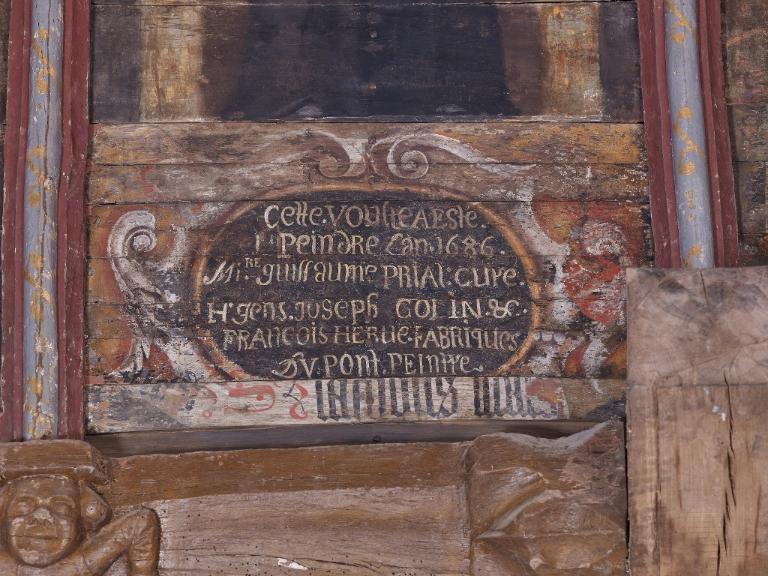 Cette VOUTE A ESTE.
PeinDre Lan. 1686.
Mi.RE guillaume PRIAL. CURE.
H. gens. JOSEPH COLIN &
FRANCOIS HERUE. FABRIQUES
DV. PONT. PEINTRE